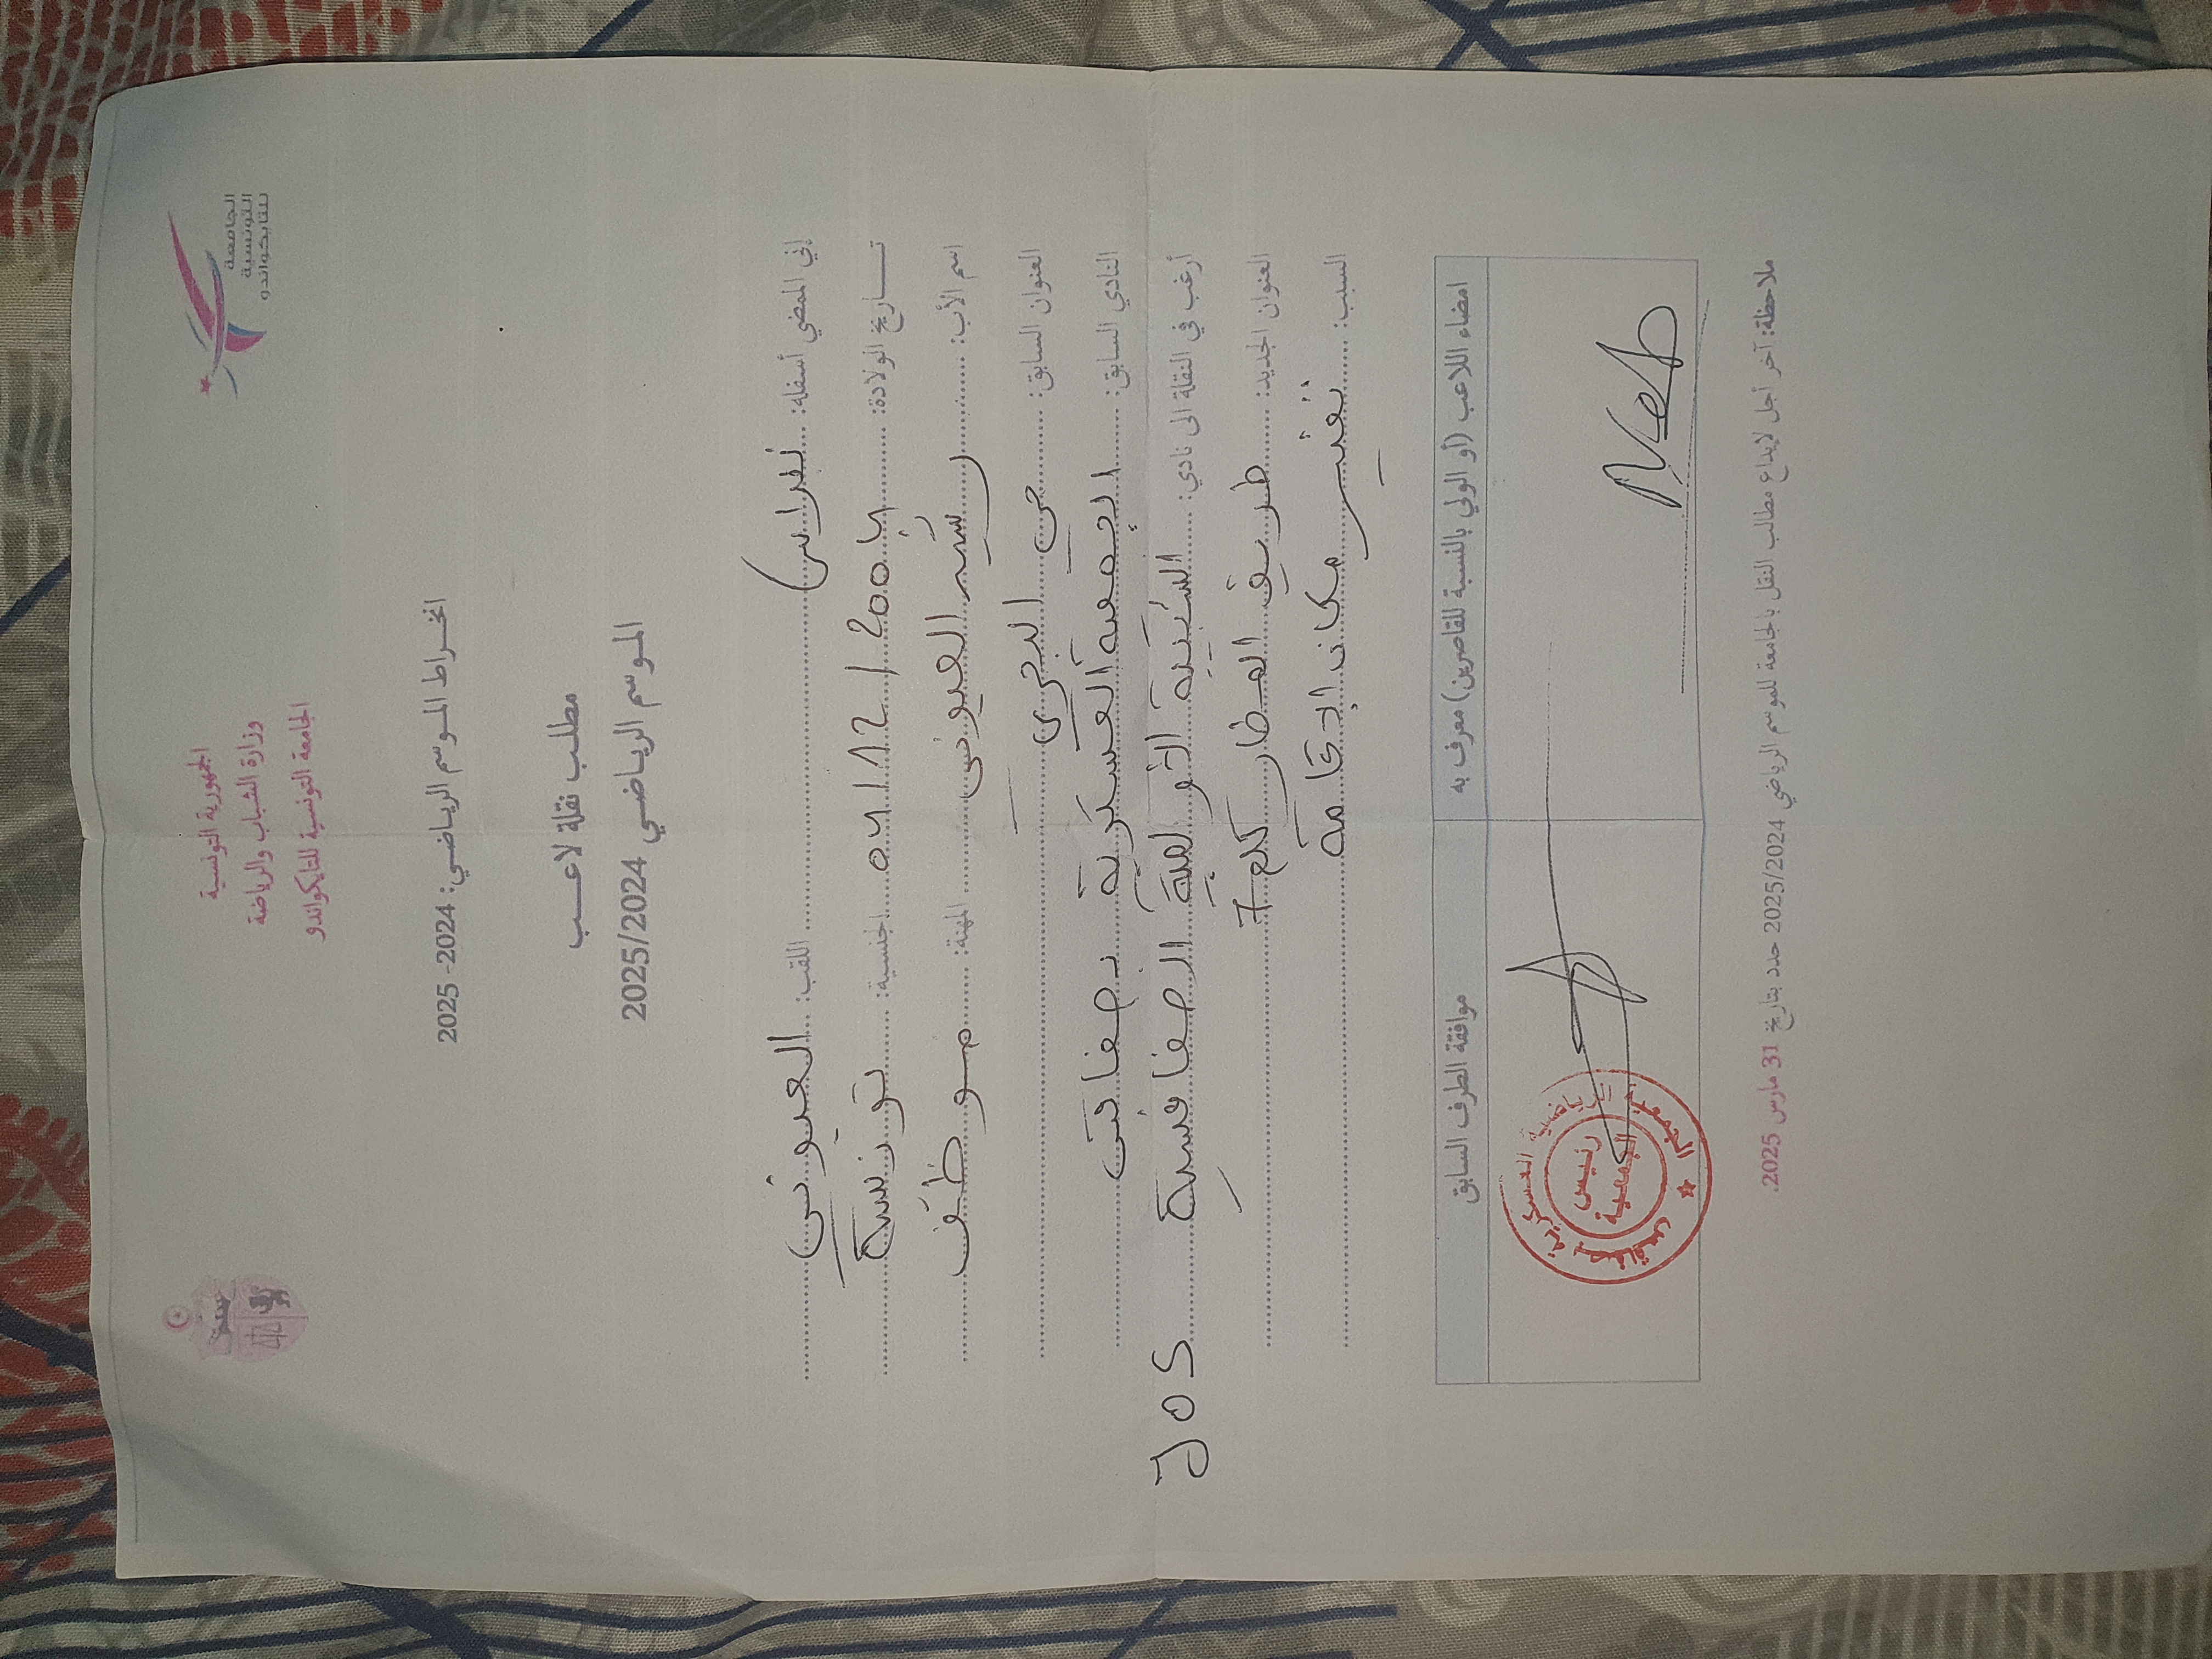 الجامعة
التونسية
للتايكواندو
الجمهورية التونسية
وزارة الشباب والرياضة
الجامعة التونسية للتايكواندو
انخـراط المـوسم الرياضـي: 2024- 2025
مطلـب نقلة لاعـــب
المـوسم الرياضـي 2025/2024
إني الممضي أسفله: نبراس اللقب: العيوني
تـــاريخ الولادة: 04/12/2004 الجنسية: تونسية
اسم الأب: رشيد العيوني المهنة: موظف
العنوان السابق: حي البحري
النادي السابق: الجمعية العسكرية بصفاقس
أرغب في النقلة الى نادي: الشبيبة الأولمبية الصفاقسية JOS
العنوان الجديد: طريق العطار كلم 7
السبب: تغيير مكان الإقامة
امضاء اللاعب (أو الولي بالنسبة للقاصرين) معرف به
موافقة الطرف السابق
الجمعية الرياضية العسكرية بصفاقس
رئيس
الجمعية
ملاحظة: آخر أجل لإيداع مطالب النقل بالجامعة للموسم الرياضي 2025/2024 حدد بتاريخ 31 مارس 2025.